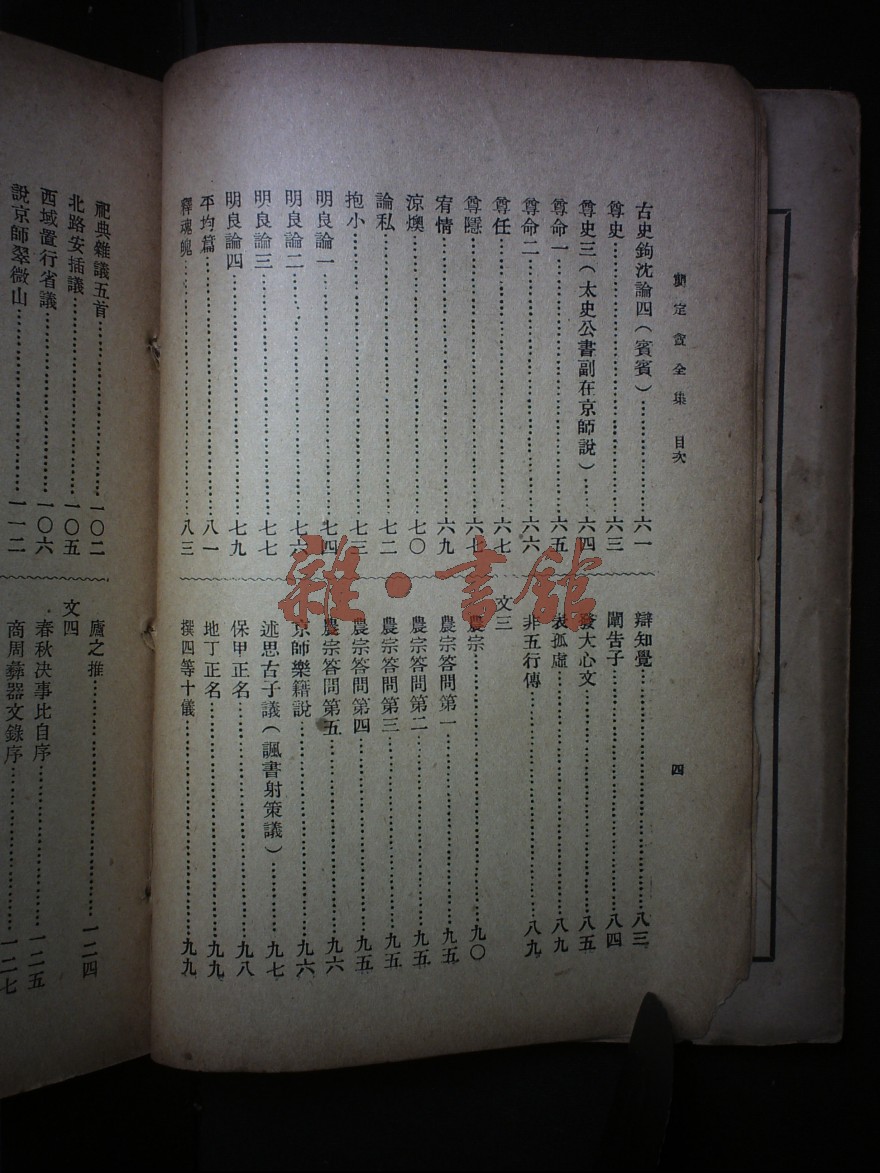 龔定盦全集 目次
四
古史鉤沈論四(賓賓)……六一
尊史……六三
尊史三(太史公書副在京師說)……六四
尊命一……六五
尊命二……六六
尊任……六七
尊隱……六七
宥情……六九
涼燠……七〇
論私……七二
抱小……七三
明良論一……七四
明良論二……七六
明良論三……七七
明良論四……七九
平均篇……八一
釋魂魄……八三
辯知覺……八三
闡告子……八四
發大心文……八五
表孤虛……八九
非五行傳……八九
文三
農宗……九〇
農宗答問第一……九五
農宗答問第二……九五
農宗答問第三……九五
農宗答問第四……九五
農宗答問第五……九六
京師樂籍說……九六
述思古子議(諷書射策議)……九七
保甲正名……九八
地丁正名……九九
撰四等十儀……九九
祀典雜議五首……一〇二
北路安插議……一〇五
西域置行省議……一〇六
說京師翠微山……一一二
廬之推……一二四
文四
春秋決事比自序……一二五
商周彝器文錄序……一二七
雜·書館